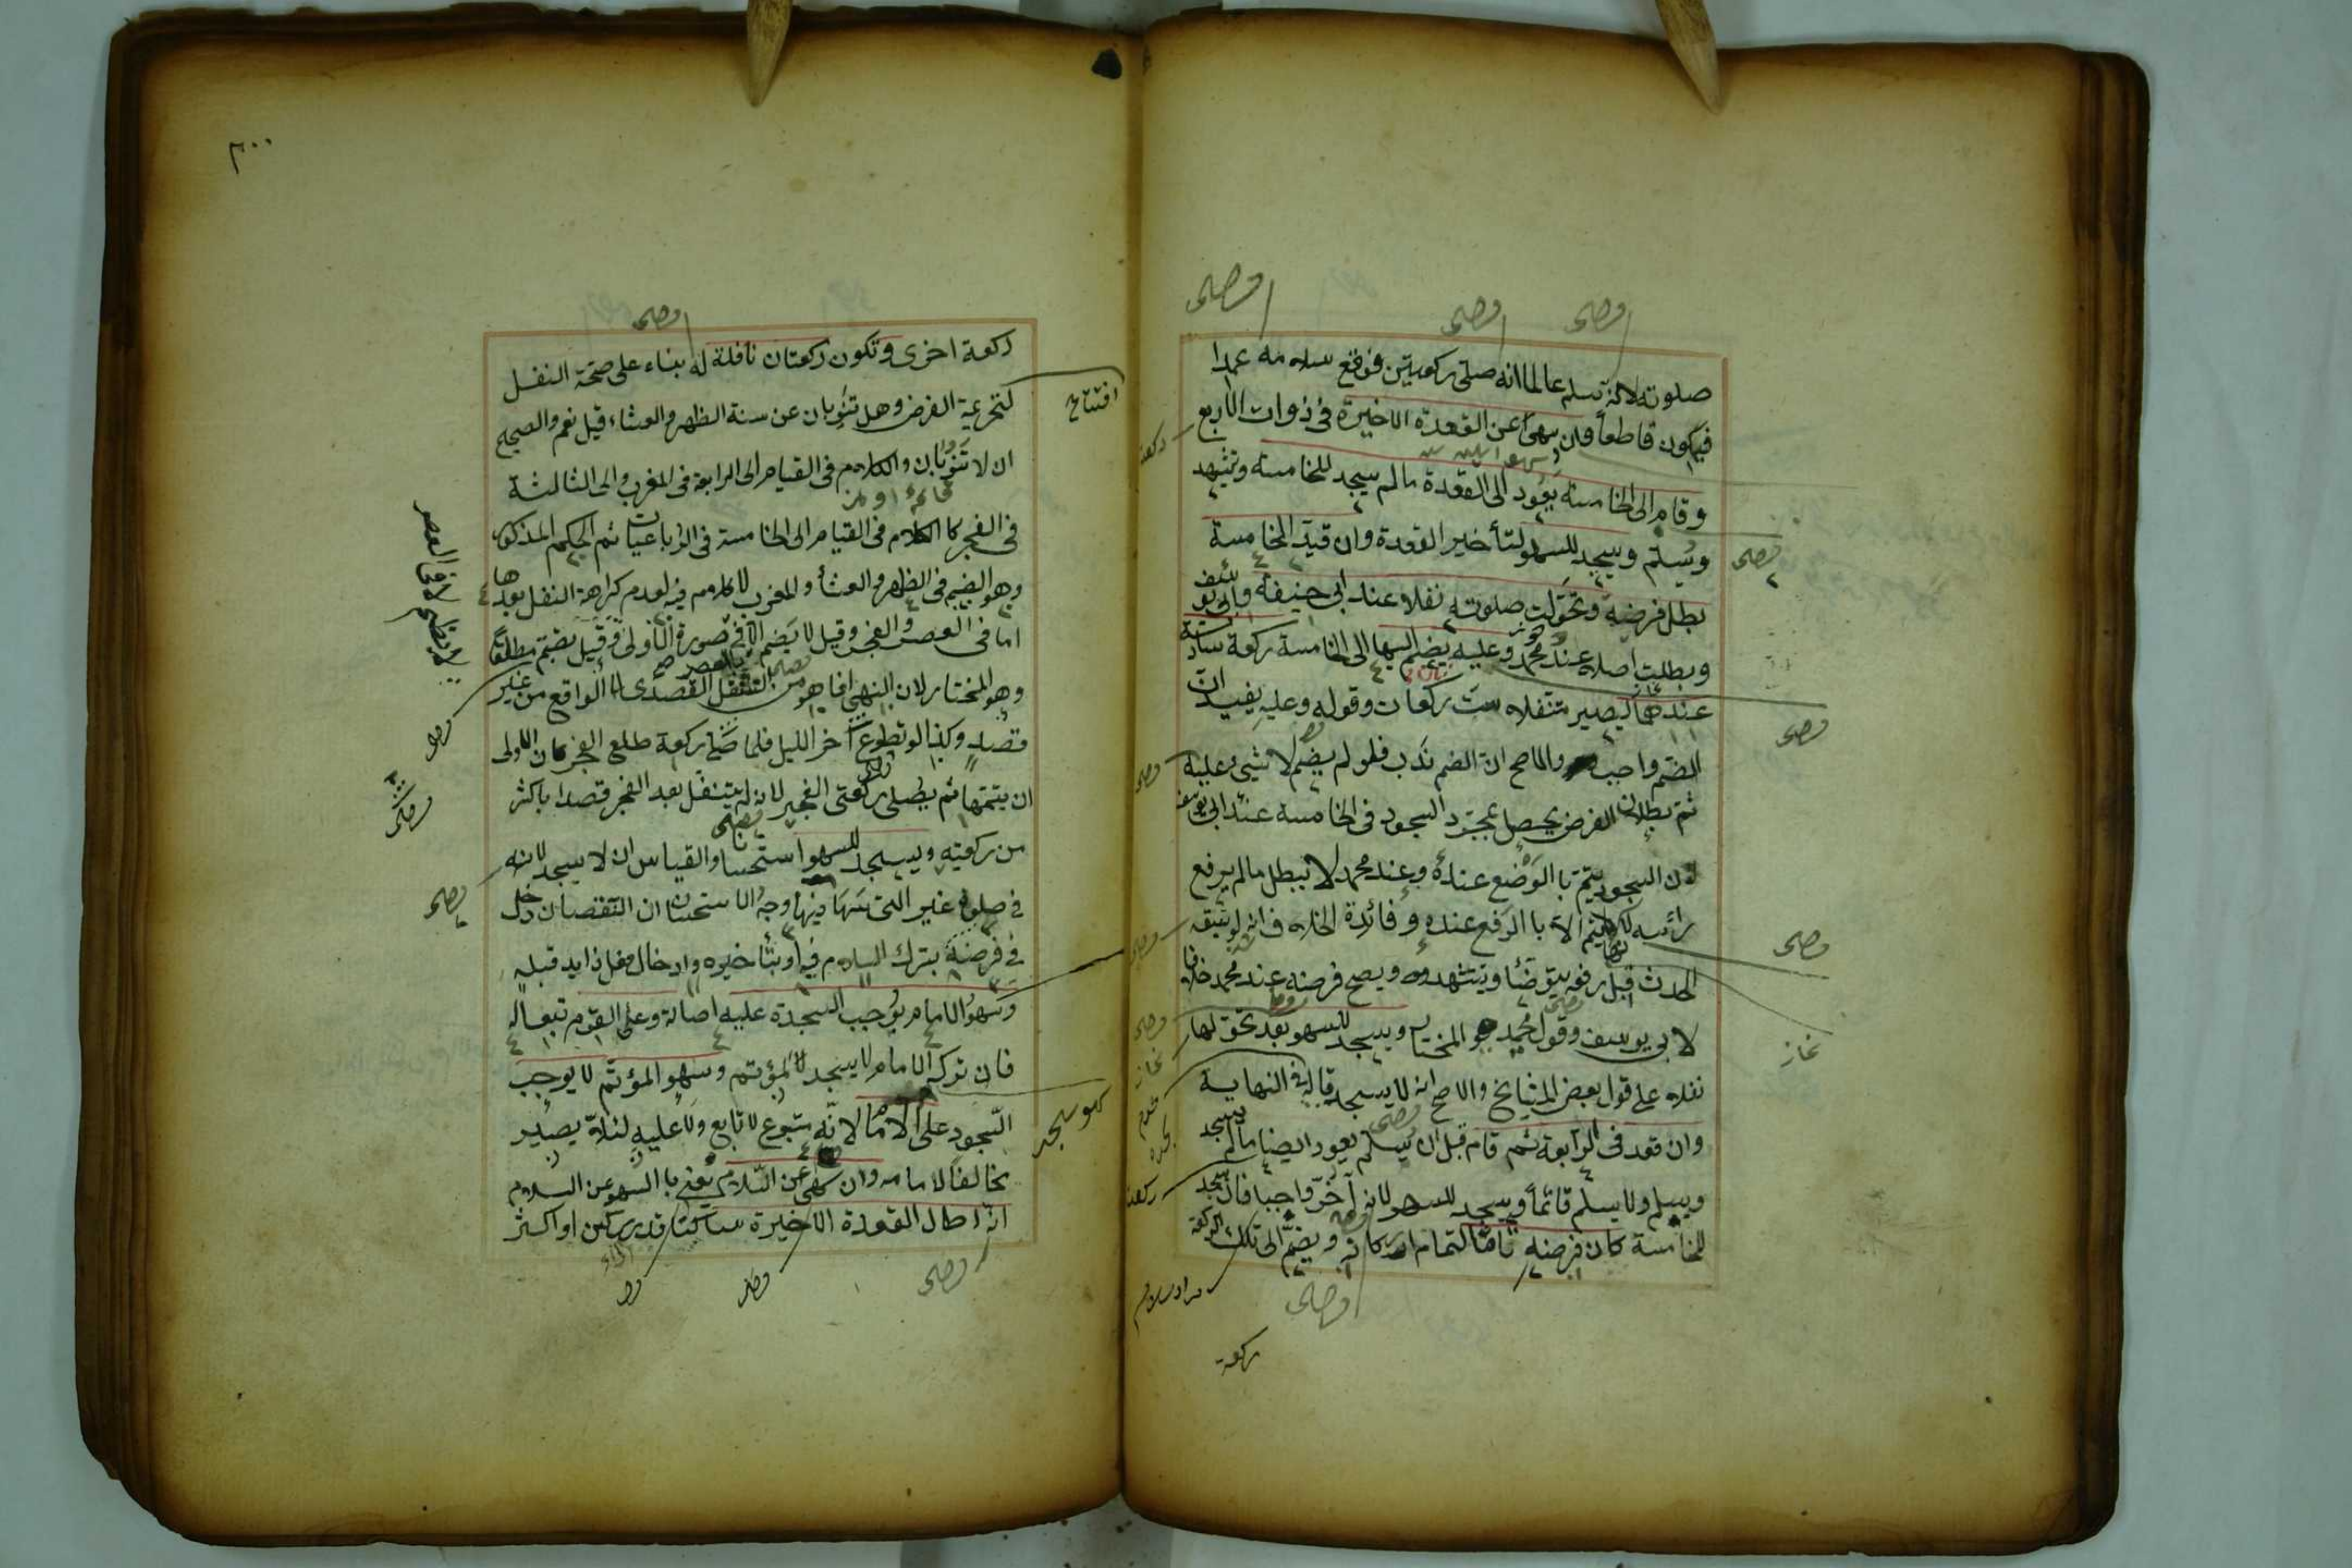 صلوته لانه سلم عالما انه صلى ركعتين فوقع سلامه عمدا
فيكون قاطعا وان سهى عن القعدة الاخيرة في ذوات الاربع
وقام الى الخامسة يعود الى القعدة ما لم يسجد للخامسة وتشهد
وسلم ويسجد للسهو لتأخير القعدة وان قيد الخامسة
بطل فرضه وتحولت صلوته نفلا عند ابي حنيفة وابي يوسف
وبطلت اصلا عند محمد وعليه يضم اليها الى الخامسة ركعة سادسة
عندهما ليصير متنفلا ست ركعات وقوله وعليه يفيد ان
الضم واجب والاصح ان الضم ندب فلو لم يضم لا شيء عليه
ثم بطلان الفرض يحصل بمجرد السجود في الخامسة عند ابي يوسف
لان السجود يتم بالوضع عنده وعند محمد لا يبطل ما لم يرفع
رأسه لكن لا يتم الا بالرفع عنده وفائدة الخلاف انه لو سبقه
الحدث قبل رفعه يتوضأ ويتشهد ويصح فرضه عند محمد خلافا
لابي يوسف وقول محمد هو المختار ويسجد للسهو بعد تحولها
نفلا على قول بعض المشايخ والاصح انه لا يسجد قاله في النهاية
وان قعد في الرابعة ثم قام قبل ان يسلم يعود ايضا ما لم يسجد
ويسلم ولا يسلم قائما ويسجد للسهو لانه اخر واجبا فان سجد
للخامسة كان فرضه تاما لتمام اركانه ويضم الى تلك الركعة
ركعة
نماز
ركعة
ركعة
٣٠٠
ركعة اخرى وتكون ركعتان نافلة له بناء على صحة النفل
لتحريمة الفرض وهل تنوبان عن سنة الظهر والعشاء قيل نعم والصحيح
ان لا تنوبان والكلام في القيام الى الرابعة في المغرب والى الثالثة
في الفجر كالكلام في القيام الى الخامسة في الرباعيات ثم الحكم المذكور
وهو الضم في الظهر والعشاء والمغرب لا كلام فيه لعدم كراهة النفل بعدها
اما في العصر والفجر وقيل لا يضم الا في صورة الاولى وقيل يضم مطلقا
وهو المختار لان النهي انما هو من التنفل القصدى لا الواقع من غير
قصد وكذا لو تطوع آخر الليل فلما صلى ركعة طلع الفجر كان الاولى
ان يتمها ثم يصلي ركعتي الفجر لانه لم يتنفل بعد الفجر قصدا باكثر
من ركعتيه ويسجد للسهو استحسانا والقياس ان لا يسجد لانه
في صلوة غير التي سها فيها وجه الاستحسان ان النقصان دخل
في فرضه بترك السلام فيه او بتأخيره وادخال فعل زايد قبله
وسهو الامام يوجب السجدة عليه اصالة وعلى القوم تبعا له
فان تركه الامام لا يسجد المؤتم وسهو المؤتم لا يوجب
السجود على الامام لانه متبوع لا تابع ولا عليه لئلا يصير
مخالفا لامامه وان سهى عن السلام يعني بالسهو عن السلام
انه اطال القعدة الاخيرة ساكتا قدر ركن او اكثر
افتتاح
سهو سجد